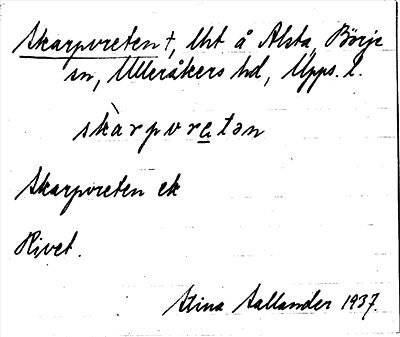 Skarpvreten †, lht å Alsta, Börje
sn, Ulleråkers hd, Upps. l.
skàrpvretən
Skarpvreten ek
Rivet.
Stina Sallander 1937.